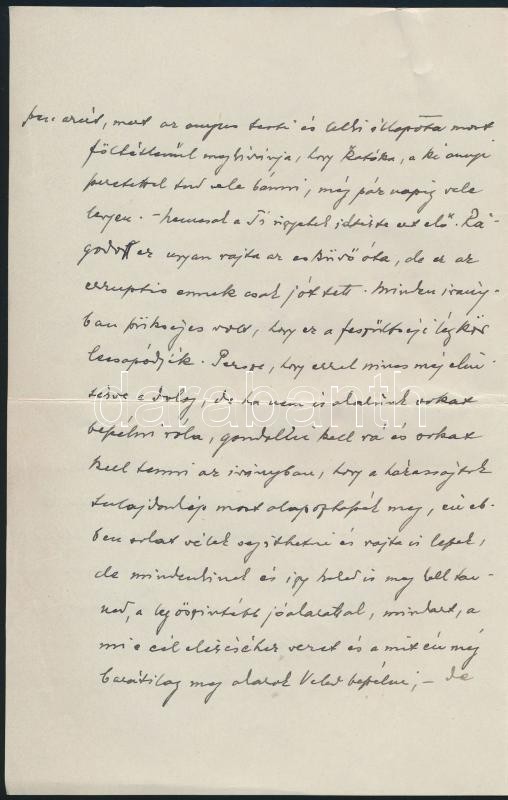 azért, mert az anyus testi és lelki állapota most
föltétlenül megkívánja, hogy Katóka, a ki annyi
szeretettel tud vele bánni, még pár napig vele
legyen. – Nemcsak a Ti ügyetek idézte ezt elő. Rá-
godott ez ugyan rajta az esküvő óta, de ez az
erruptio ennek csak jót tett. Minden irány-
ban szükséges volt, hogy ez a feszültségi légkör
lecsapódjék. Persze, hogy ezzel nincs még elin-
tézve a dolog, de ha nem is akarunk sokat
beszélni róla, gondolni kell rá és sokat
kell tenni az irányban, hogy a házasságtok
tulajdonkép most alapoztassék meg, én eb-
ben sokat vélek segíthetni és rajta is leszek,
de mindenkinek és így neked is meg kell ten-
ned, a legőszintébb jóakarattal, mindazt, a
mi e cél eléréséhez vezet és a mit én még
barátilag meg akarok Veled beszélni; – de
darabanth